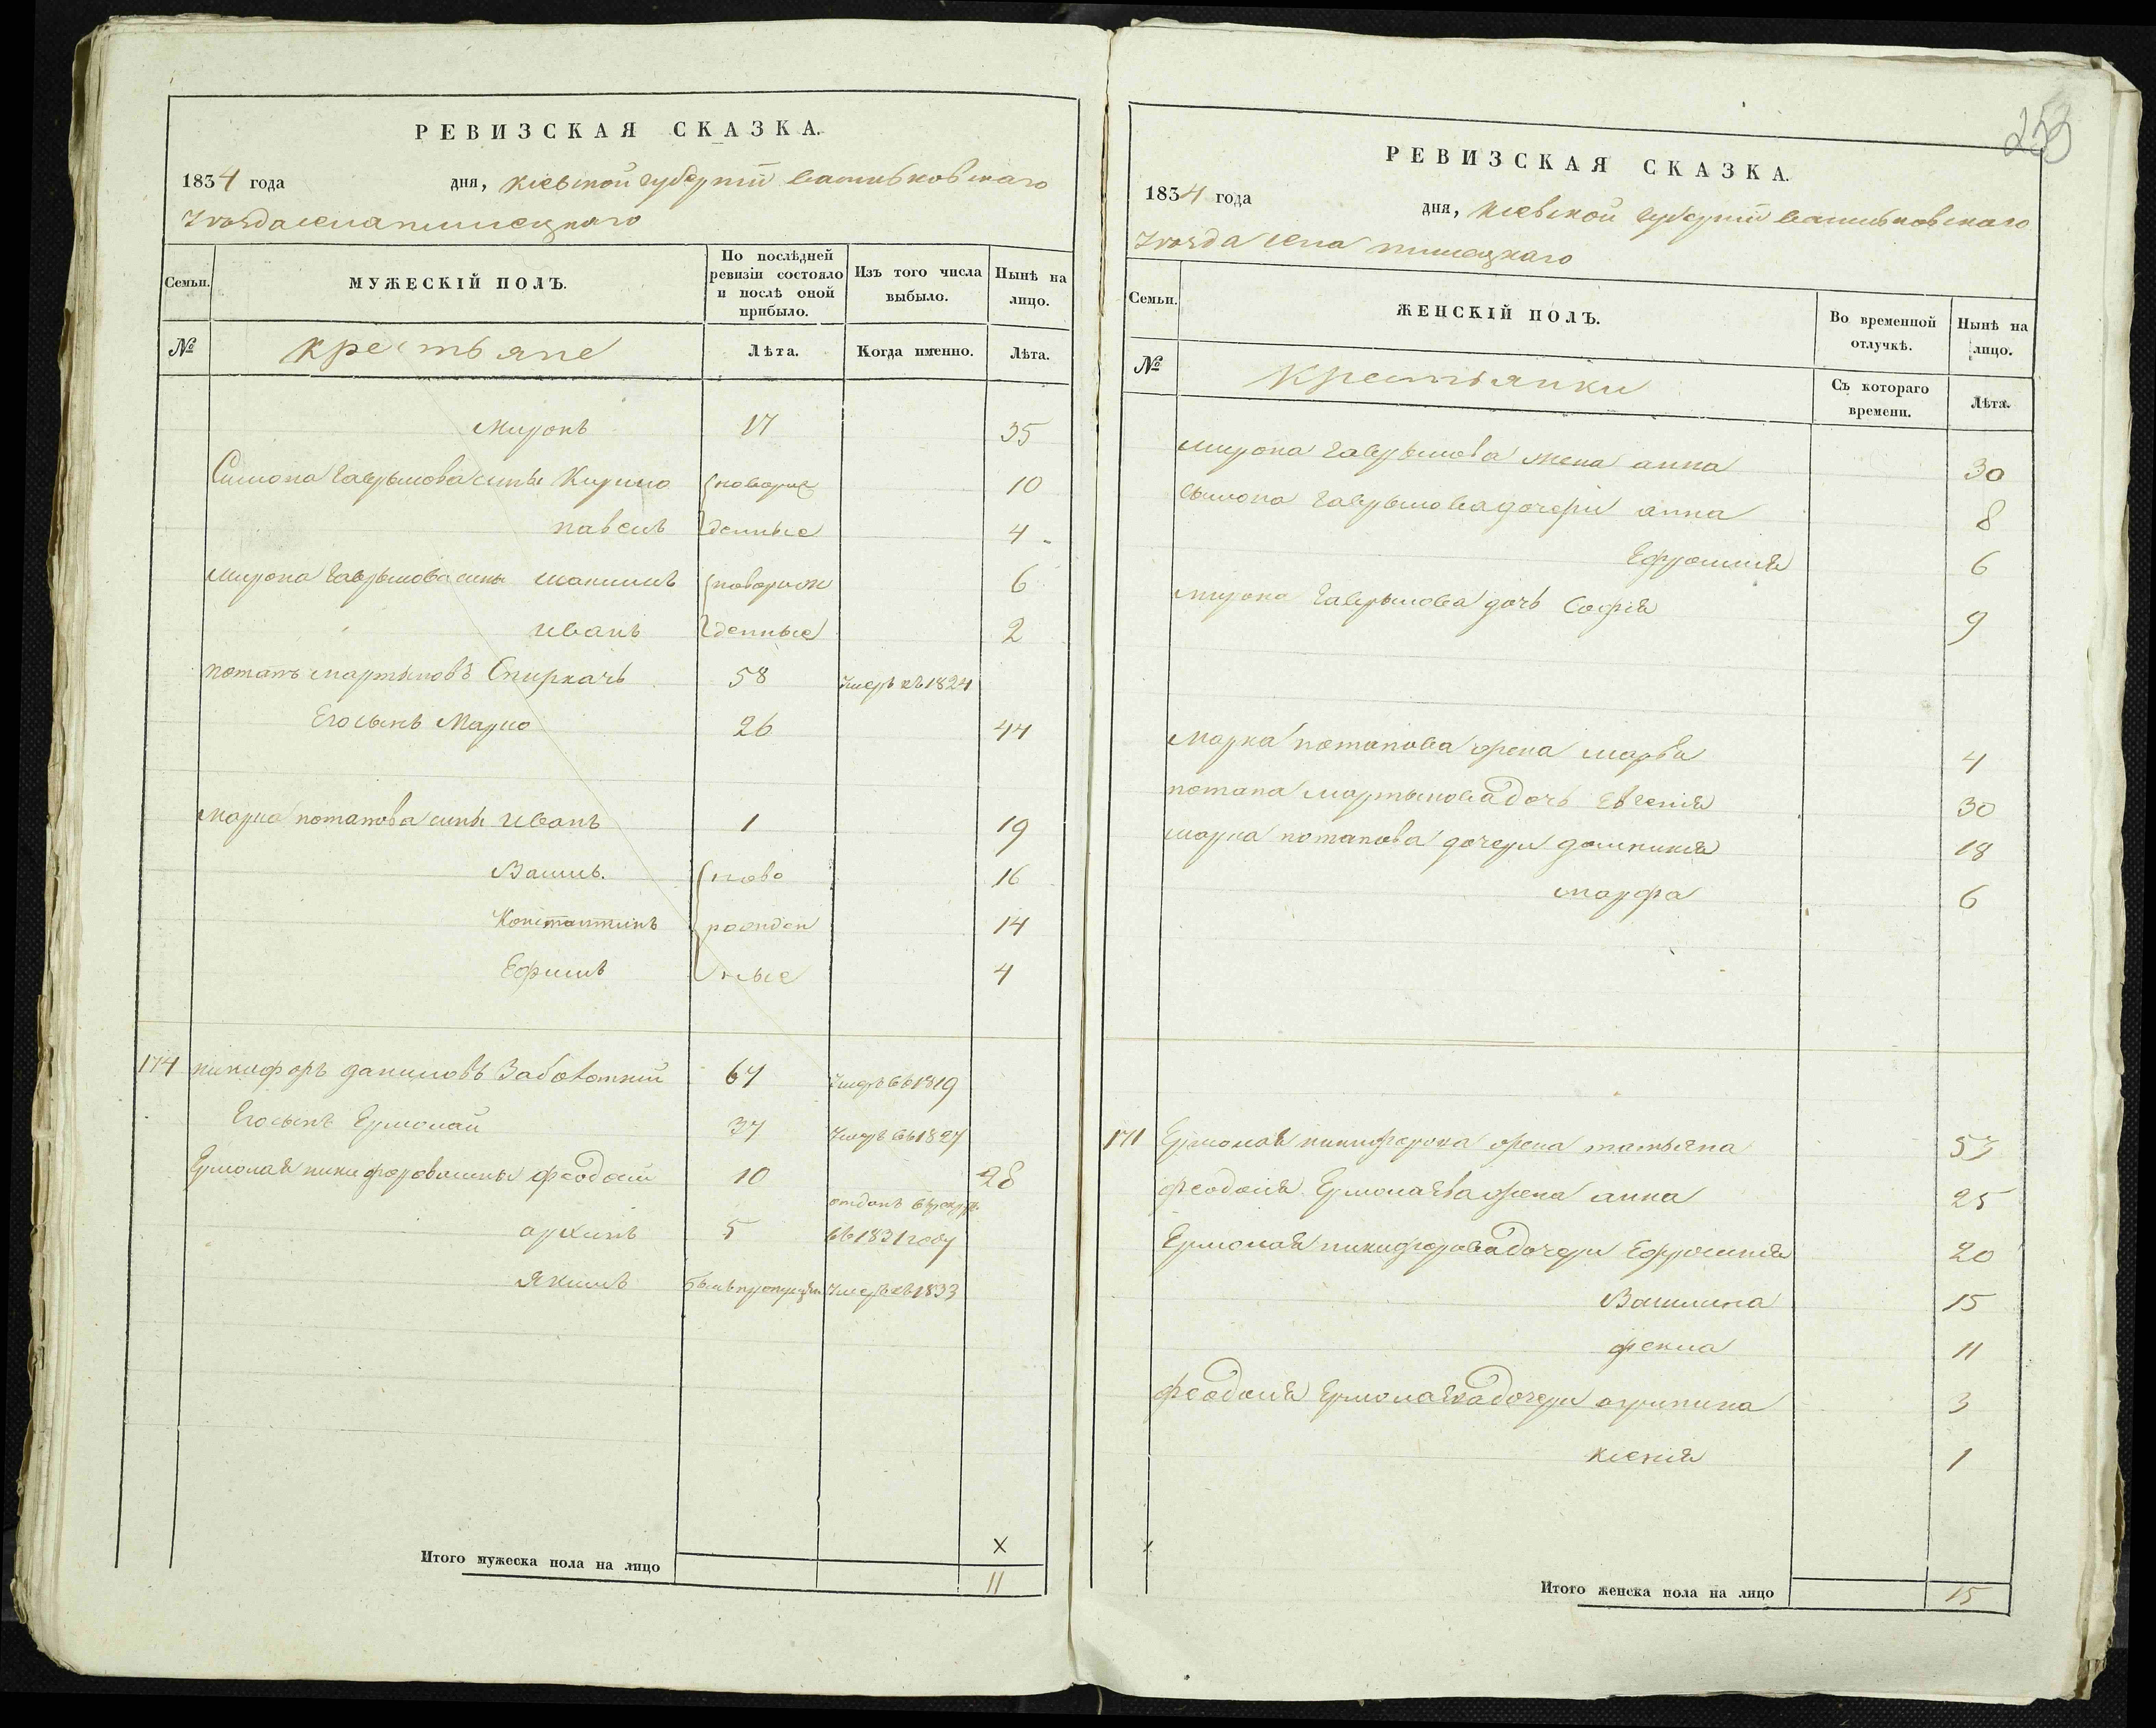 РЕВИЗСКАЯ СКАЗКА.
1834 года дня, Кіевской губерніи Васильковскаго
Уезда села
Семьи. МУЖЕСКІЙ ПОЛЪ. По послѣдней ревизіи состояло и послѣ оной прибыло. Изъ того числа выбыло. Нынѣ на лицо.
№ Крестьяне Лѣта. Когда именно. Лѣта.
Миронъ 17 35
Симона Гаврылова сыны Кирило новорож 10
павелъ денные 4
мирона Гаврылова сыны максимъ новорож 6
иванъ денные 2
потапъ мартыновъ Спиркачь 58 Умеръ въ 1824
Его сынъ Марко 26 44
Марка потапова сыны Иванъ 1 19
Василь. ново 16
Константинъ рожден 14
Ефимъ ные 4
174 никифоръ даниловъ Заболотний 67 Умеръ въ 1819
Его сынъ Ермолай 37 Умеръ въ 1827
Ермолая никифорова сыны феодосій 10 28
архипъ 5 отданъ въ рекруты
въ 1831 году
Якимъ былъ пропущен Умеръ въ 1833
Итого мужеска пола на лицо
х
11
253
РЕВИЗСКАЯ СКАЗКА.
1834 года дня, Кіевской Губерніи Васильковскаго
Уезда села
Семьи. ЖЕНСКІЙ ПОЛЪ. Во временной отлучкѣ. Нынѣ на лицо.
№ Крестьянки Съ котораго времени. Лѣта.
мирона Гаврылова жена анна 30
сымона Гаврылова дочери анна 8
Ефросинія 6
мирона Гаврылова дочь Софія 9
Марка потапова жена 4
потапа Мартынова дочь Евгенія 30
марка потапова дочери домникія 18
марфа 6
171 Ермолая никифорова жена татьяна 53
феодосія Ермолаева жена анна 25
Ермолая никифорова дочери Ефросинія 20
Василина 15
фекла 11
феодосія Ермолаева дочери агрипина 3
ксенія 1
х
Итого женска пола на лицо 15